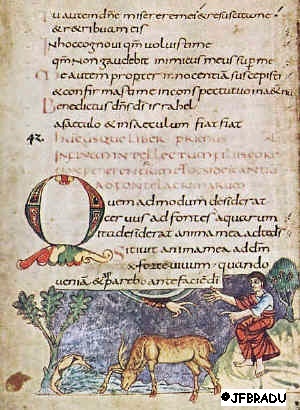 Tu autem dne miserere mei & resuscita me
& retribuam eis
In hoc cognovi qm voluisti me
qm non gaudebit inimicus meus sup me
Me autem propter innocentia suscepisti
& confirmasti me in conspectu tuo in
Benedictus dns ds israhel
a saeculo & in saeculum fiat fiat
42. HUCUSQUE LIBER PRIMUS
IN FINEM INTELLECTUM FILIIS CORE
Quem ad modum desiderat
cervus ad fontes aquarum
ita desiderat anima mea ad te ds
Sitivit anima mea ad dm
& forte vivum quando
venia & parebo ante facie di
©JFBRADU